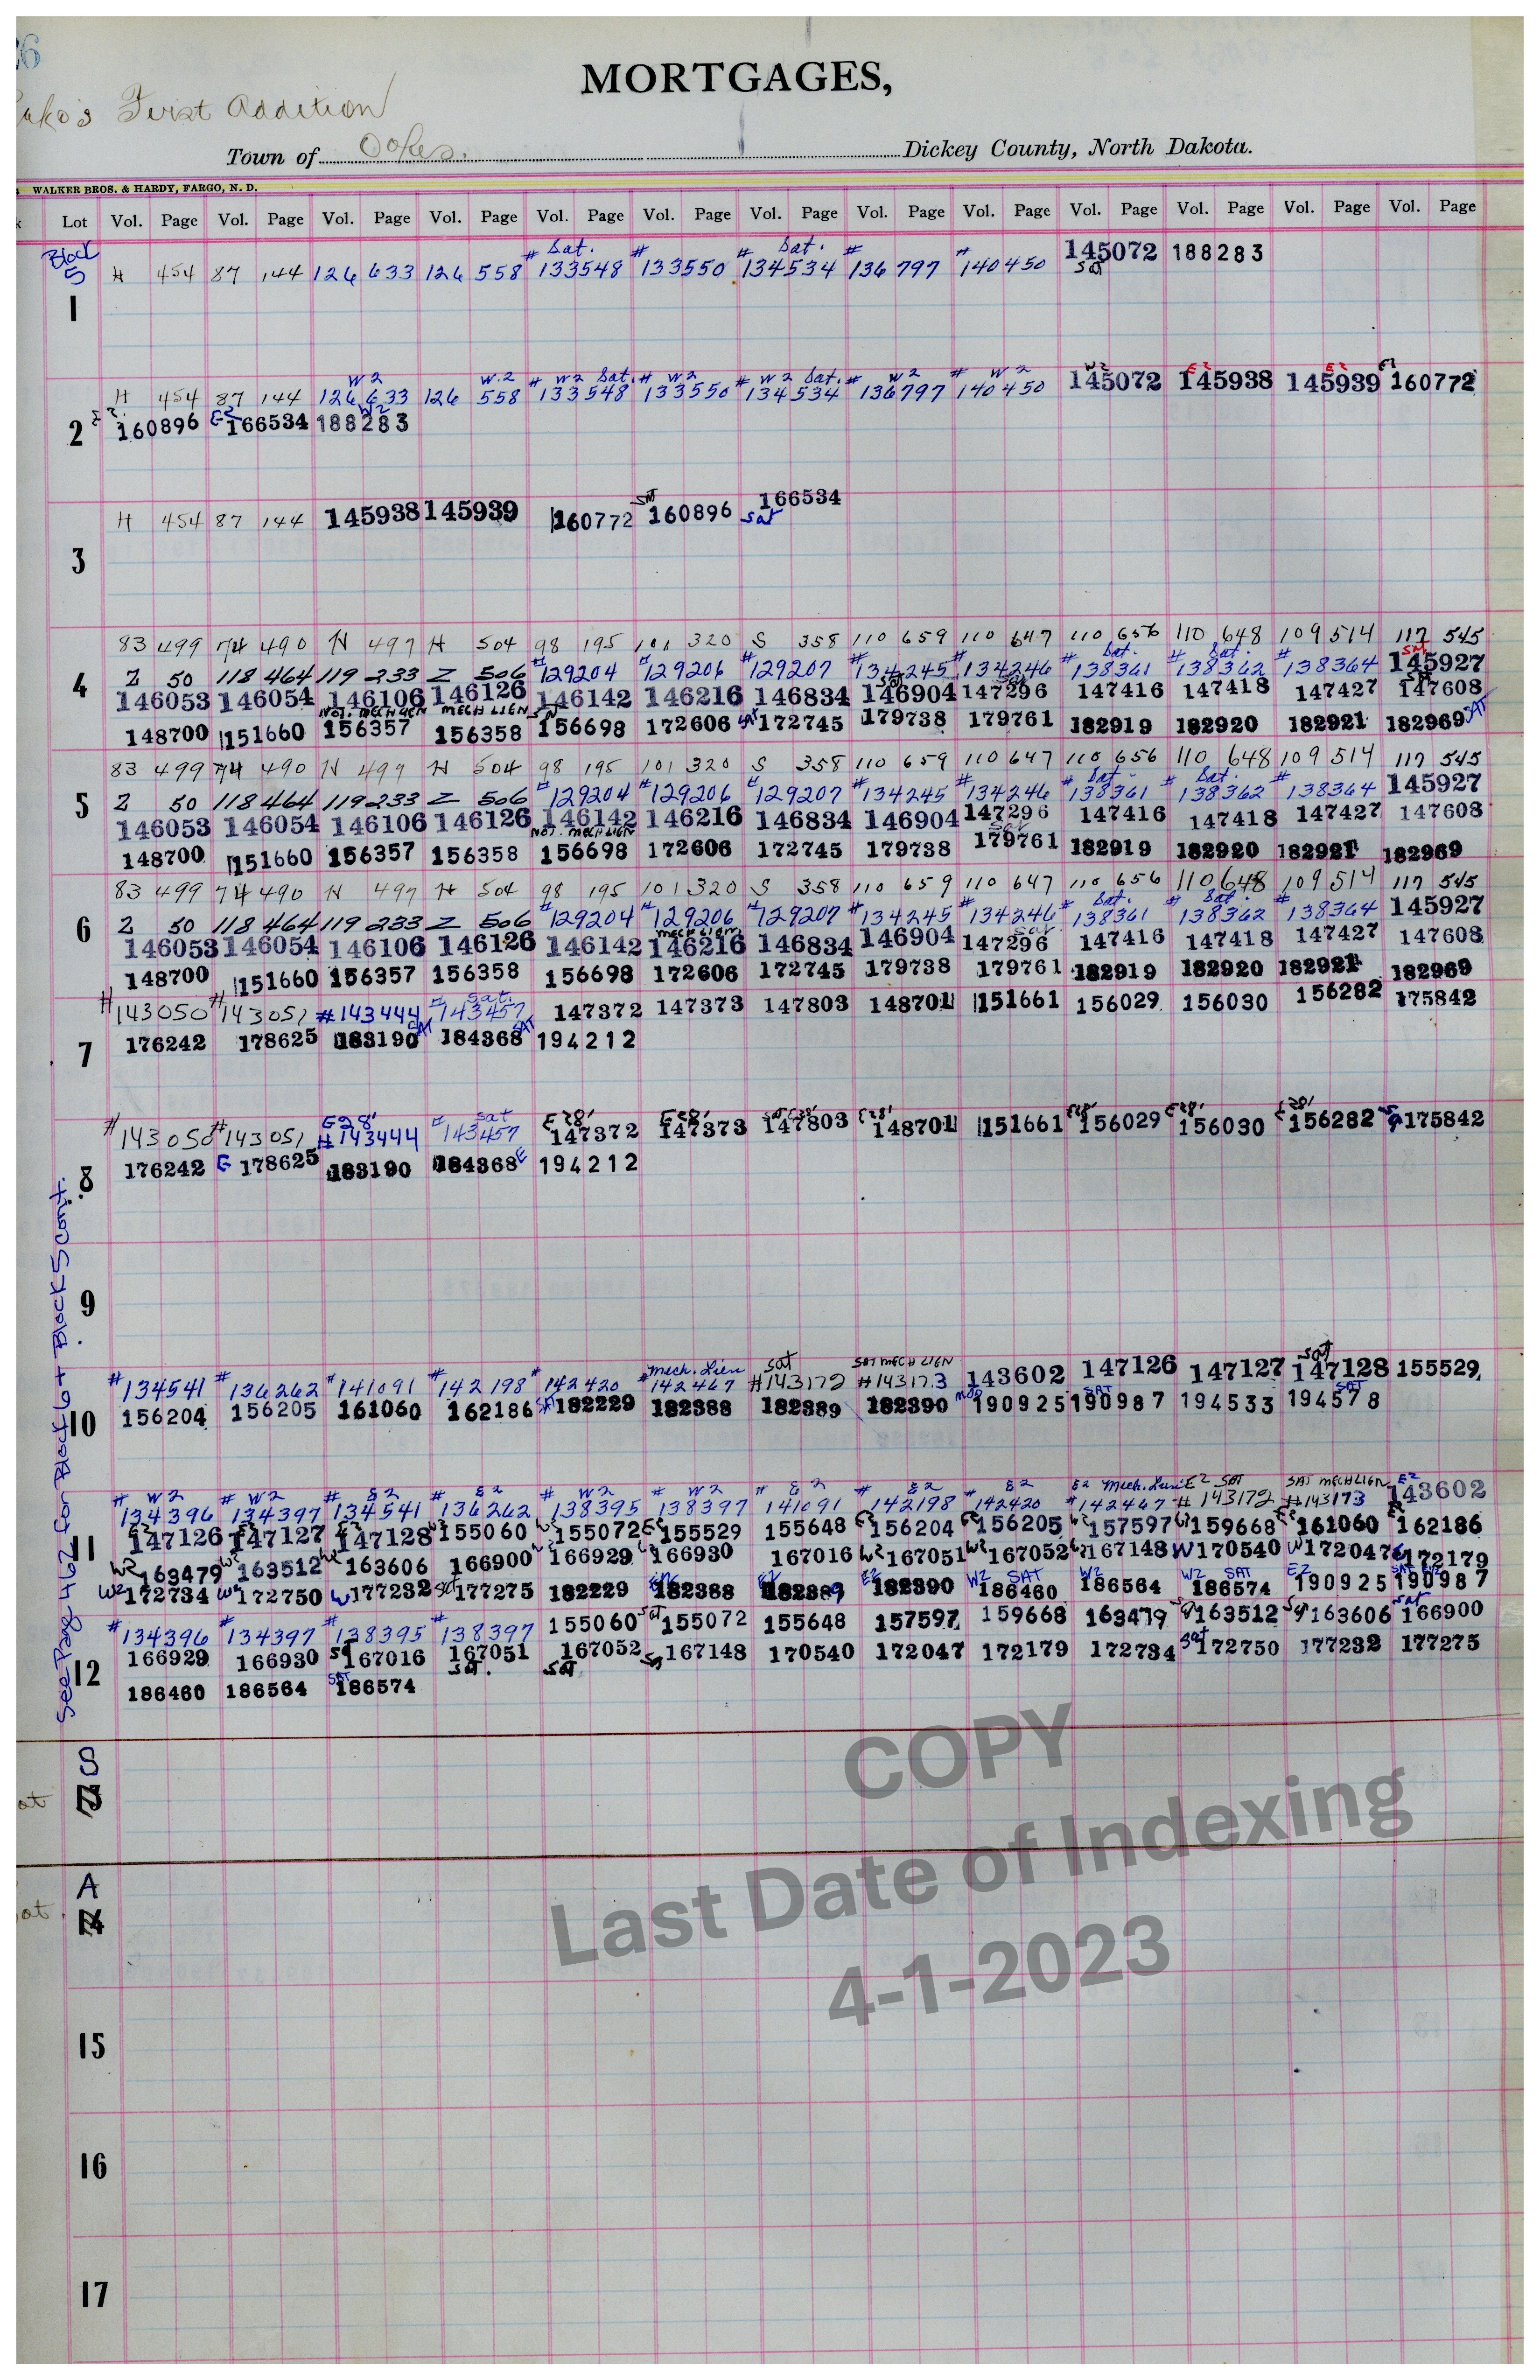 36
MORTGAGES,
First Addition
Town of Oakes. Dickey County, North Dakota.
WALKER BROS. & HARDY, FARGO, N. D.
Lot Vol. Page Vol. Page Vol. Page Vol. Page Vol. Page Vol. Page Vol. Page Vol. Page Vol. Page Vol. Page Vol. Page Vol. Page Vol. Page
Block 5
Sat. Sat. 145072 188283
H 454 87 144 126 633 126 558 #133548 #133550 #134534 #136797 #140450 Sat
1
W2 W.2 W2 Sat. W2 W2 Sat. W2 W2 W2 E2 E2 E2
H 454 87 144 126 633 126 558 #133548 #133550 #134534 #136797 #140450 145072 145938 145939 160772
2 160896 E2 166534 W2 188283
H 454 87 144 145938 145939 160772 Sat 160896 Sat 166534
3
83 499 74 490 N 497 H 504 98 195 101 320 S 358 110 659 110 647 110 656 110 648 109 514 117 545
Sat. Sat. Sat
4 Z 50 118 464 119 233 Z 506 #129204 #129206 #129207 #134245 #134246 #138361 #138362 #138364 145927
146053 146054 146106 146126 146142 146216 146834 146904 147296 147416 147418 147427 147608
Not. MECH LIEN MECH LIEN
148700 151660 156357 156358 156698 172606 Sat 172745 179738 179761 182919 182920 182921 182969 SAT
83 499 74 490 N 497 H 504 98 195 101 320 S 358 110 659 110 647 110 656 110 648 109 514 117 545
Sat. Sat.
5 Z 50 118 464 119 233 Z 506 #129204 #129206 #129207 #134245 #134246 #138361 #138362 #138364 145927
146053 146054 146106 146126 146142 146216 146834 146904 147296 147416 147418 147427 147608
NOT. MECH LIEN
148700 151660 156357 156358 156698 172606 172745 179738 179761 182919 182920 182921 182969
83 499 74 490 N 497 H 504 98 195 101 320 S 358 110 659 110 647 110 656 110 648 109 514 117 545
Sat. Sat.
6 Z 50 118 464 119 233 Z 506 #129204 #129206 #129207 #134245 #134246 #138361 #138362 #138364 145927
mech lien
146053 146054 146106 146126 146142 146216 146834 146904 147296 147416 147418 147427 147608
148700 151660 156357 156358 156698 172606 172745 179738 179761 182919 182920 182921 182969
Sat.
#143050 #143051 #143444 #143457 147372 147373 147803 148701 151661 156029 156030 156282 175842
7 176242 178625 183190 SAT 184368 SAT 194212
E28' Sat E28' E28' Sat E28' E28' E28' E28' E28'
#143050 #143051 #143444 #143457 147372 147373 147803 148701 151661 156029 156030 156282 175842
8 176242 E 178625 183190 184368 E 194212
9
mech. Lien Sat SAT MECH LIEN Sat
#134541 #136262 #141091 #142198 #142420 #142467 #143172 #143173 143602 147126 147127 147128 155529
10 156204 156205 161060 162186 Sat 182229 182388 182389 182390 190925 SAT 190987 194533 SAT 194578
W2 W2 E2 E2 W2 W2 E2 E2 E2 E2 Mech. Lien E2 SAT SAT MECH LIEN E2
#134396 #134397 #134541 #136262 #138395 #138397 #141091 #142198 #142420 #142467 #143172 #143173 143602
11 147126 147127 147128 155060 155072 155529 155648 156204 156205 157597 159668 161060 162186
W2 163479 W2 163512 W2 163606 166900 W2 166929 166930 167016 W2 167051 W2 167052 167148 W 170540 W 172047 172179
W2 172734 W2 172750 W 177232 Sat 177275 182229 182388 182389 E2 182390 W2 SAT 186460 W2 186564 W2 SAT 186574 E2 190925 SAT E2 190987
#134396 #134397 #138395 #138397 155060 Sat 155072 155648 157597 159668 163479 163512 163606 Sat 166900
12 166929 166930 Sat 167016 167051 Sat. 167052 Sat 167148 170540 172047 172179 172734 Sat 172750 177232 177275
186460 186564 SAT 186574
See Page 462 for Block 6 + Block 5 cont.
S
at
A
at.
14
15
16
17
COPY
Last Date of Indexing
4-1-2023